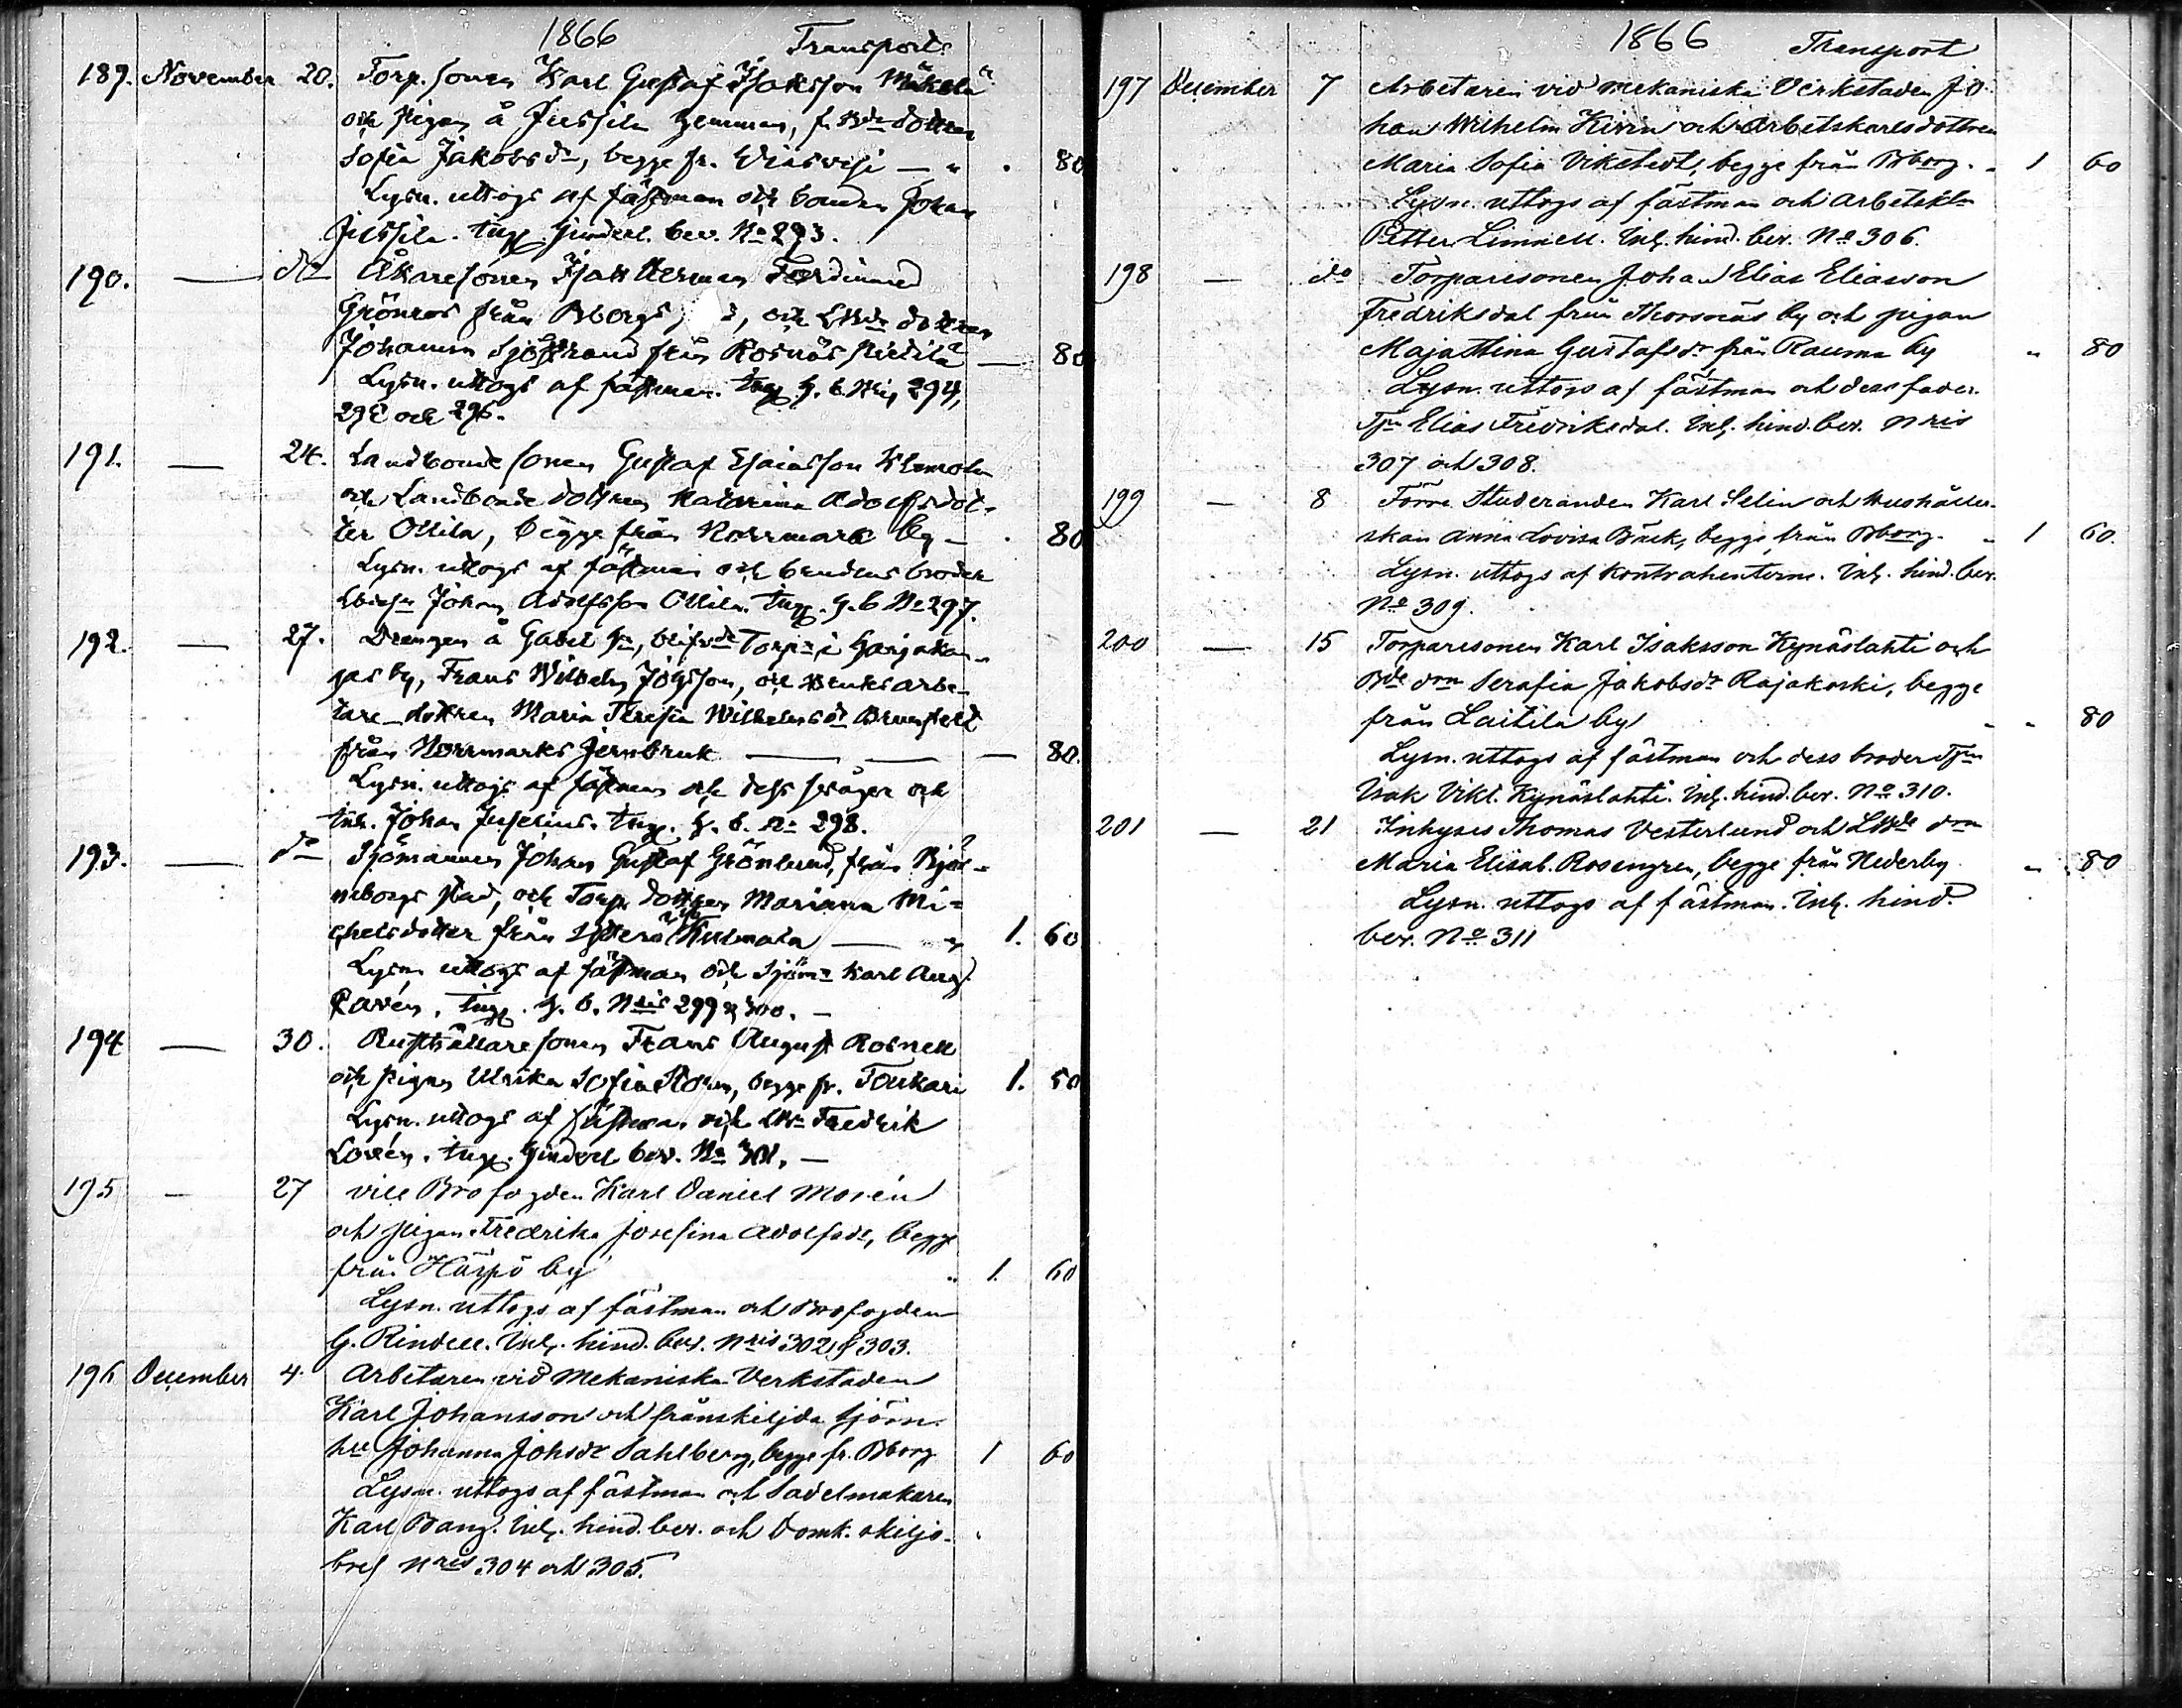 1866 Transport
189. November 20. Torp. sonen Karl Gustaf Isaksson Mäkelä
och pigan å Jussila hemman, f. Bde dottren
Sofia Jakobsdr, begge fr. Viasvesi — " . 80
Lysn. uttogs af fästman och bonden Johan
Jussila. Ingg. hinderl. bev. No 293.
190. — do Åkaresonen Isak Herman Ferdinand
Grönroos från Bborgs, och Lbde dottren
Johanna Sjöstrand från Rosnäs Pietilä — 80
Lysn. uttogs af fästman. Ingg. h. b. Nris 294,
295 och 296.
191. — 24. Landbonde sonen Gustaf Esaiasson Klemola
och Landbonde dottren Katarina Adolfsdot-
ter Ollila, begge från Norrmark by — . 80
Lysn. uttogs af fästman och brudens broder
Johan Adolfsson Ollila. Ingg. h. b No 297.
192. — 27. Drengen å Gabel, blifvde Torpr i Harjakan-
gas by, Frans Wilhelm Johsson, och Bruksarbe-
tare-dottren Maria Teresia Wilhelmsdr Brunfeldt
från Norrmarks Jernbruk — — — 80.
Lysn. uttogs af fästman och dess svåger och
Inh. Johan Juselius. Ingg. h. b. No 298.
193. — do Sjömannen Johan Gustaf Grönlund, från Björ-
neborgs stad, och Torp. dottren Mariana Mi-
chelsdotter från Yttere Kulmala — " 1. 60
Lysn. uttogs af fästman och Sjöm. Karl Aug.
Ravén. Ingg. h. b. Nris 299 & 300. —
194 — 30. Rusthållare sonen Frans August Rosnell
och pigan Ulrika Sofia Sten, begge fr. Toukari 1. 50
Lysn. uttogs af fästman och Fredrik
Lovén. Ingg. hinderl. bev. No 301. —
195 — 27 vice Brofogden Karl Daniel Morén
och pigan Fredrika Josefina Adolfsdr, begge
från Härpö by " 1. 60
Lysn. uttogs af fästman och Brofogden
G. Rindell. Inl. hind. bev. Nris 302 & 303.
196 December 4. Arbetaren vid Mekaniska Verkstaden
Karl Johansson och frånskiljda sjöm.
hu Johanna Johsdr Sahlberg, begge fr. Bborg 1 60
Lysn. uttogs af fästman och Sadelmakaren
Karl Bang. Inl. hind. bev. och Domk. skiljo-
bref Nris 304 och 305.
1866 Transport
197 December 7 Arbetaren vid mekaniska Verkstaden Jo-
han Wilhelm Kivin och Arbetskarlsdottren
Maria Sofia Vikstedt, begge från Bborg. " 1 60
Lysn. uttogs af fästman och Arbetskln
Petter Linnell. Inl. hind. bev. No 306.
198 — do Torparesonen Johan Elias Eliasson
Fredriksdal från Thorsnäs by och pigan
Maja Stina Gustafsdr från Rauma by " 80
Lysn. uttogs af fästman och dess fader
Tpn Elias Fredriksdal. Inl. hind. bev. Nris
307 och 308.
199 — 8 Förre Studeranden Karl Selin och Hushåller-
skan Anna Lovisa Bäck, begge från Bborg. " 1 60.
Lysn. uttogs af Kontrahenterne. Inl. hind. bev.
No 309.
200 — 15 Torparesonen Karl Isaksson Kynäslahti och
Bde drn Serafia Jakobsdr Rajakoski, begge
från Laitila by " " 80
Lysn. uttogs af fästman och dess broder Tpn
Isak Vikt. Kynäslahti. Inl. hind. bev. No 310.
201 — 21 Inhyses Thomas Vesterlund och Lbde drn
Maria Elisab. Rosengren, begge från Nederby " 80
Lysn. uttogs af fästman. Inl. hind.
bev. No 311